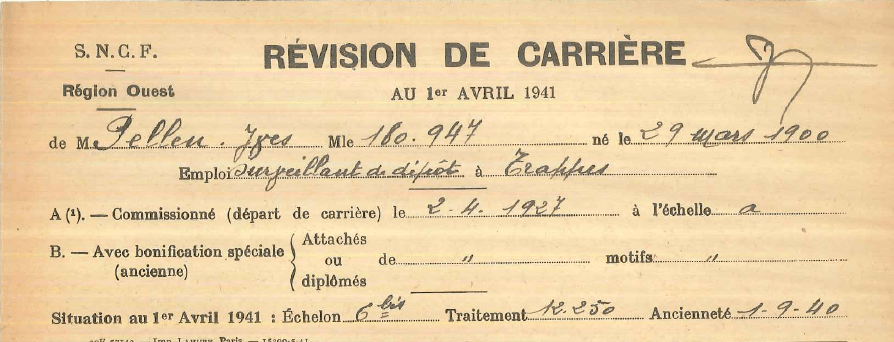 S. N. C. F.
RÉVISION DE CARRIÈRE
Région Ouest
AU 1er AVRIL 1941
de M. Pellen. Yves Mle 180.947 né le 29 mars 1900
Emploi surveillant de dépôt à Trappes
A (1). — Commissionné (départ de carrière) le 2-4. 1927 à l'échelle a
B. — Avec bonification spéciale (ancienne) { Attachés ou diplômés de " motifs "
Situation au 1er Avril 1941 : Échelon 6 bis Traitement 12.250 Ancienneté 1-9-40